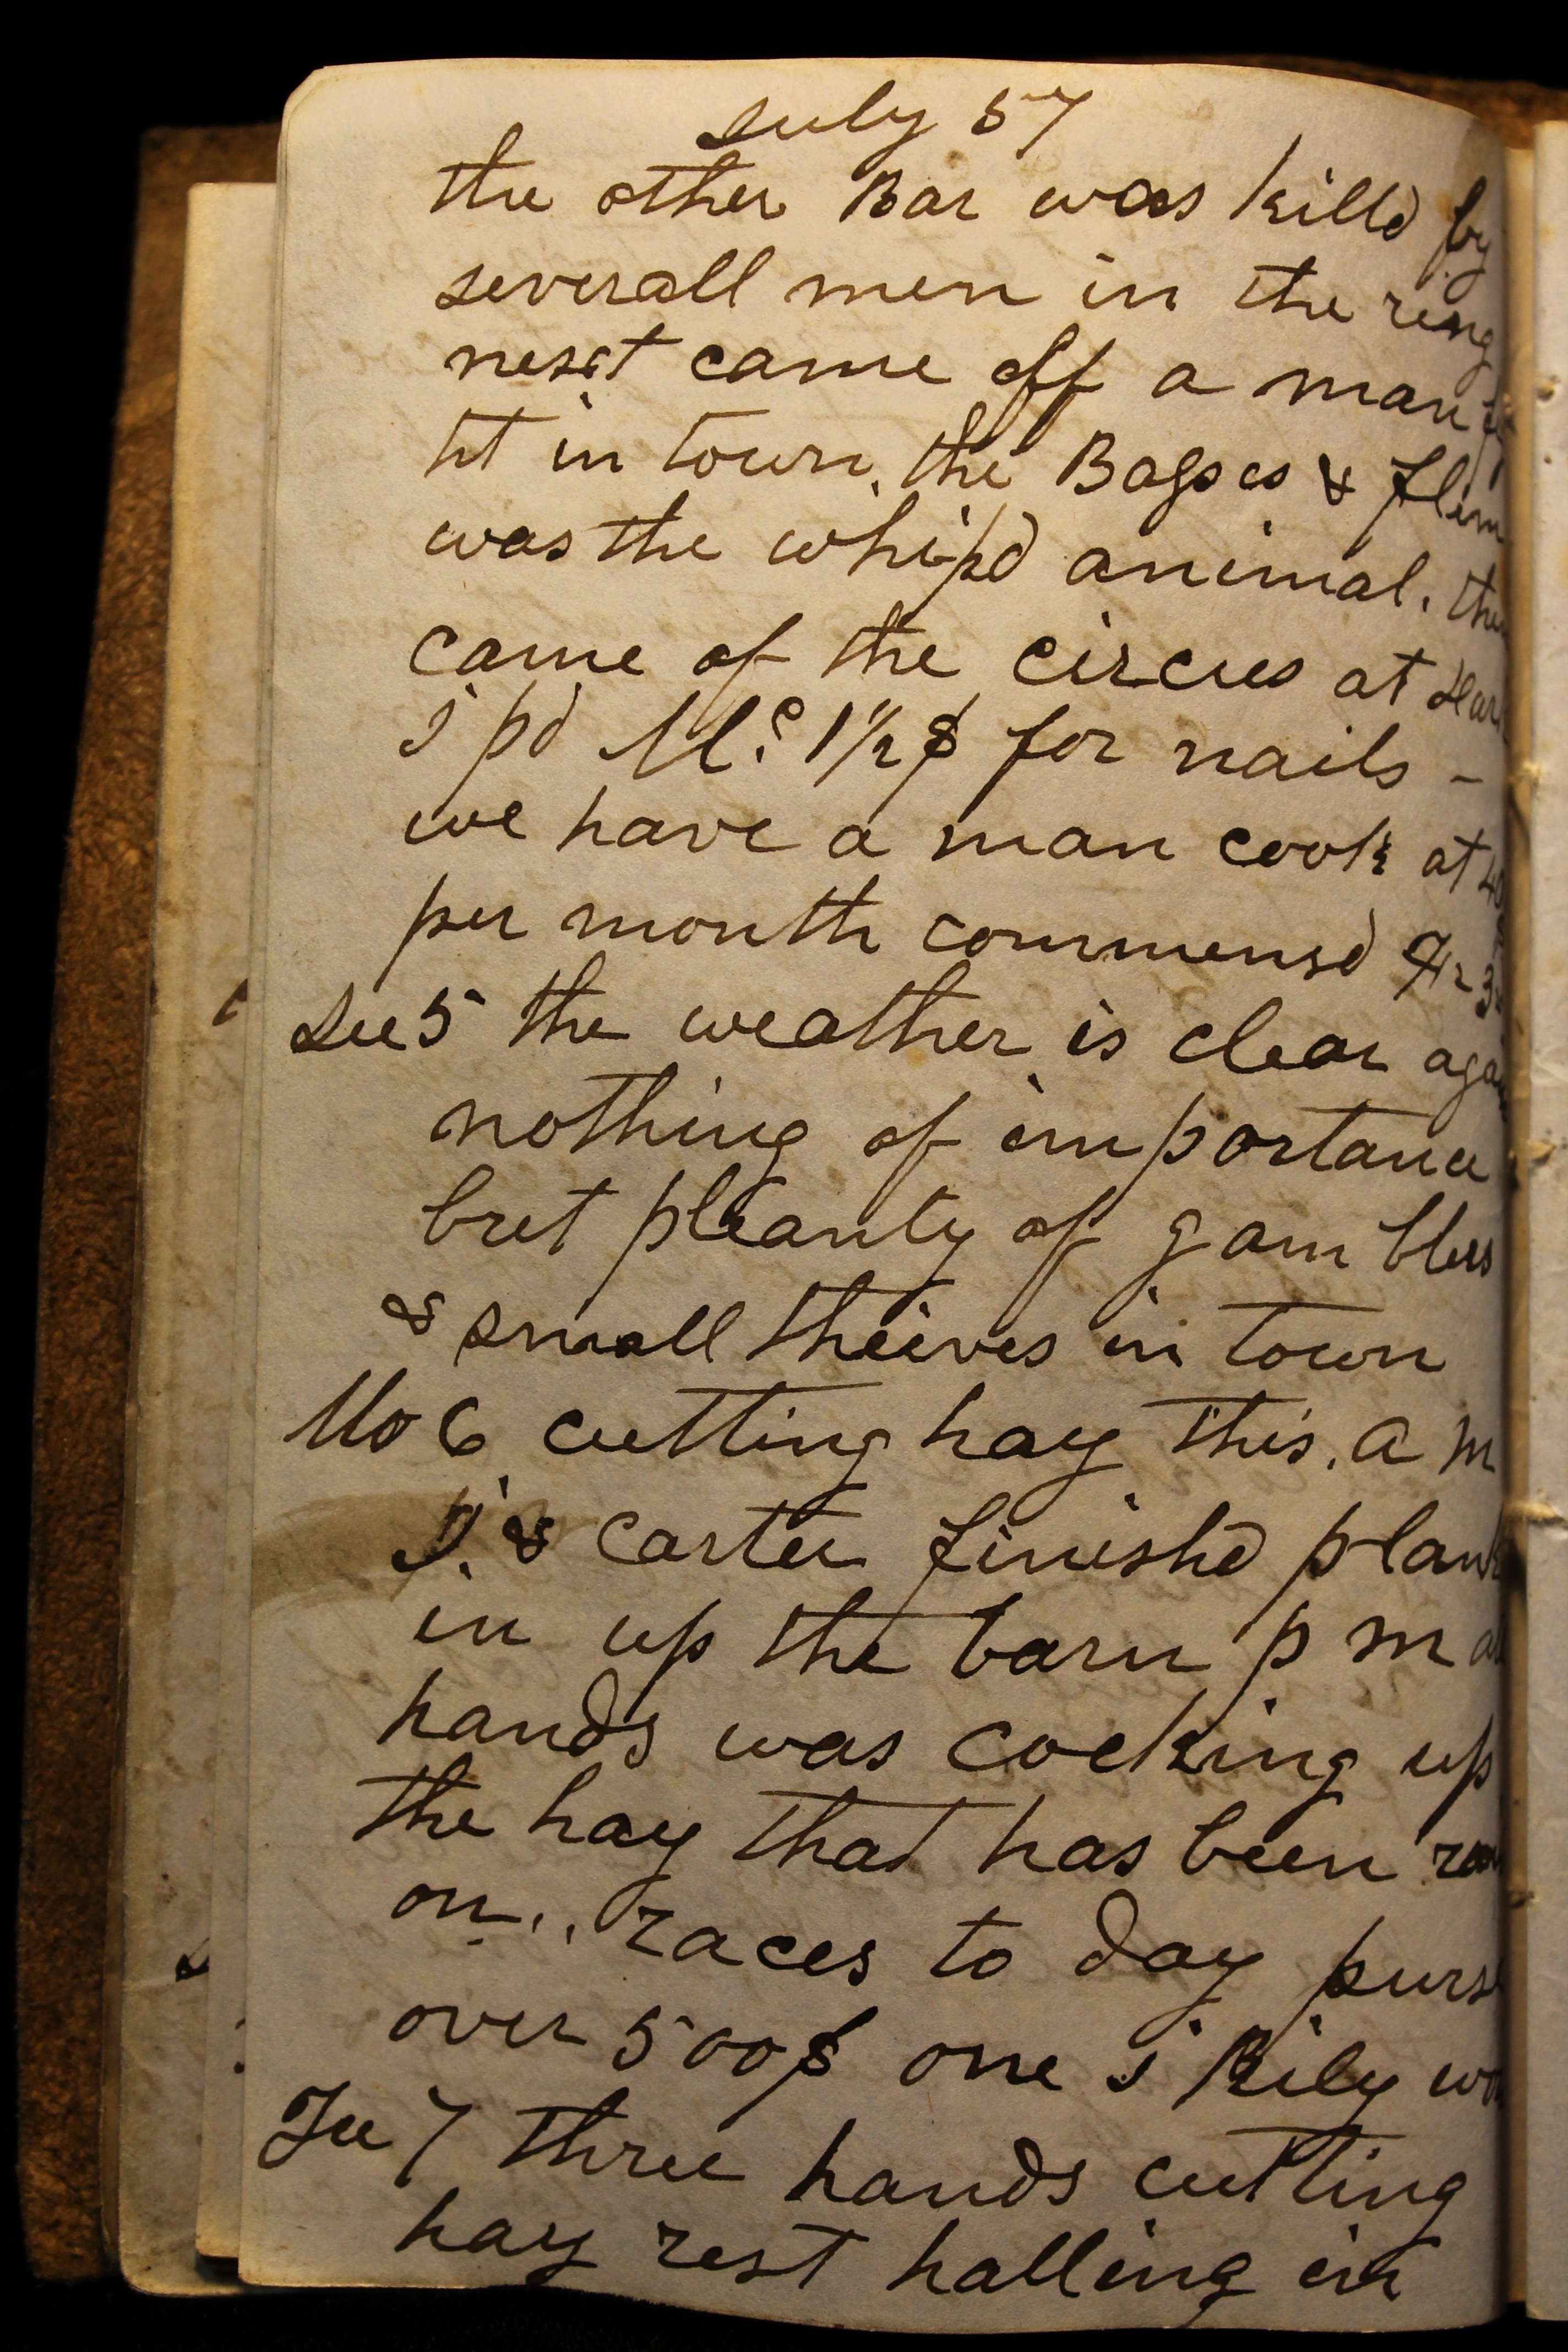 July 57
the other Bar was killd by
severall men in the ring
next came off a man
tit in town. the & flem
was the whipd animal. then
came of the circus at dark
I pd Mc 1½$ for nails -
we have a man cook at 40
per month commensd
Su 5 the weather is clear again
nothing of importance
but pleanty of gamblers
& small theives in town
Mo 6 cutting hay this. a m
J. & Carter finishd plank
in up the barn p m all
hands was cocking up
the hay that has been
on.. races to day purse
over 500$ one J Rily won
Tu 7 three hands cutting
hay rest halling in